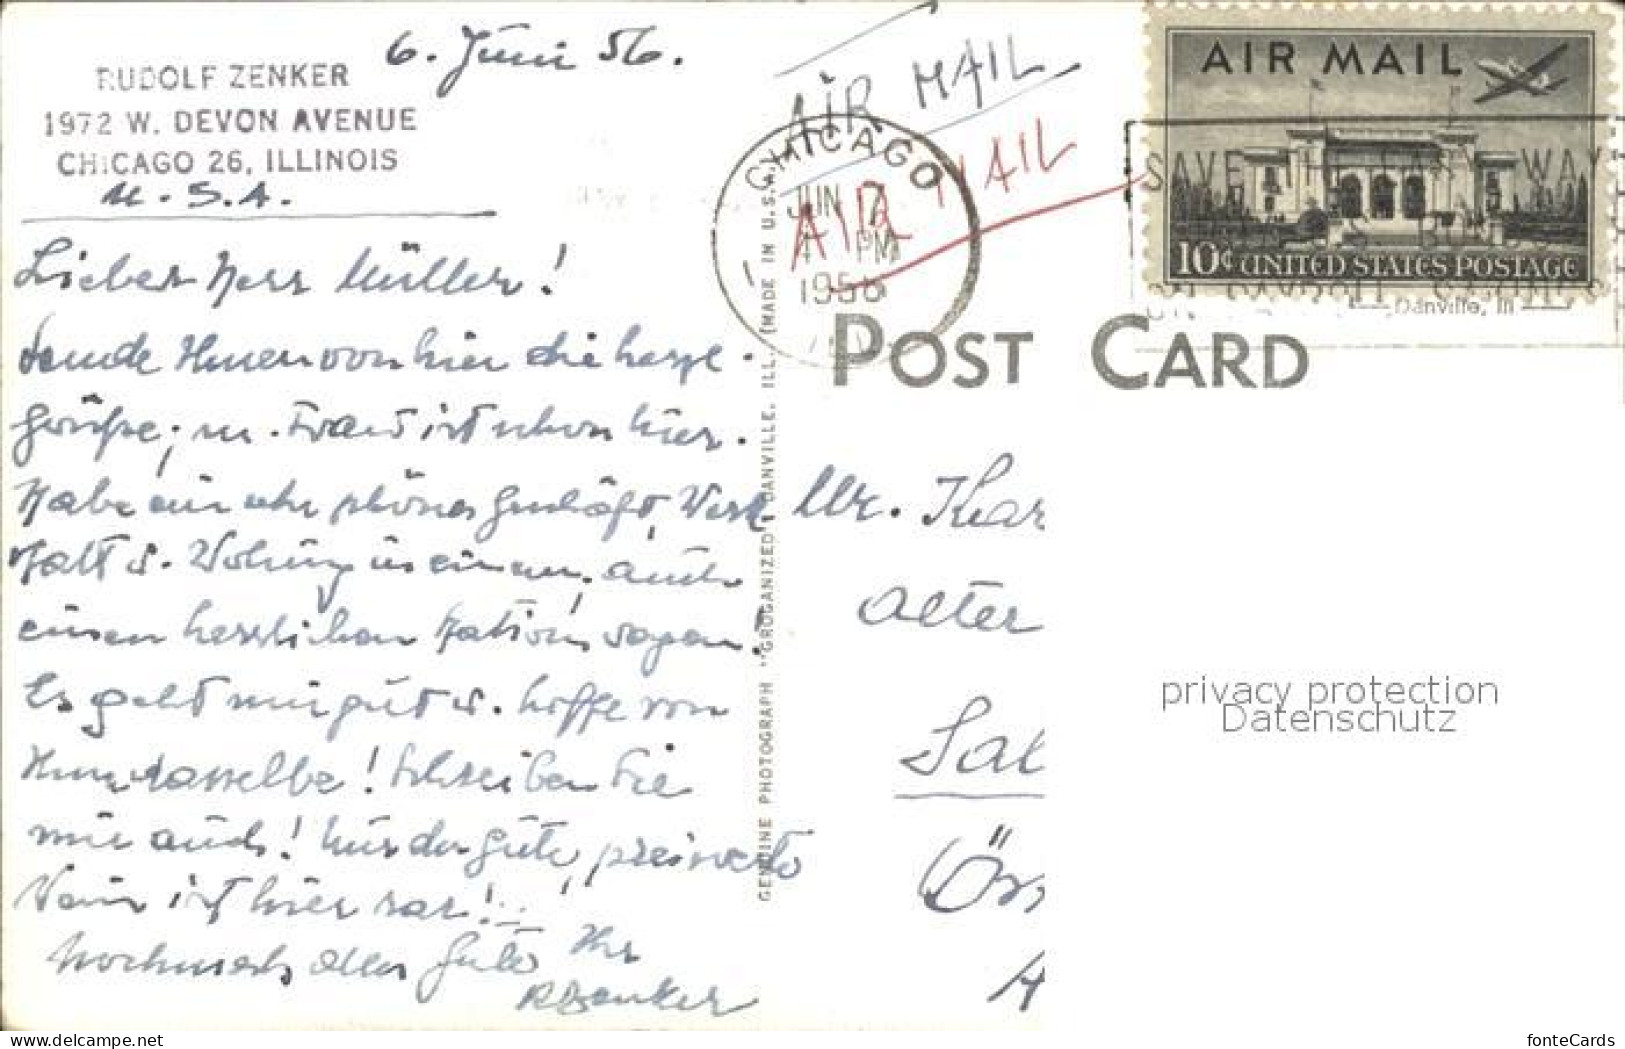 6. Juni 56.
RUDOLF ZENKER
1972 W. DEVON AVENUE
CHICAGO 26, ILLINOIS
U.S.A.
Lieber Herr Müller!
Sende Ihnen von hier die herzl.
Grüße; m. Frau ist schon hier.
Habe ein sehr schönes Geschäft, Werk
statt u. Wohung in einem, auch
einen herrlichen
Es geht mir gut u. hoffe von
Ihnen dasselbe! Schreiben Sie
mir auch! Nur der gute, preiswerte
Wein ist hier rar!
Nochmals alles Gute Ihr
RZenker
GENUINE PHOTOGRAPH "GROGANIZED" DANVILLE, ILL. (MADE IN U.S.
AIR MAIL
AIR MAIL
CHICAGO
JUN 7
PM
1956
AIR MAIL
10¢ UNITED STATES POSTAGE
SAVE THE EASY WAY
BUY BONDS
ON PAYROLL SAVINGS
Danville, Ill
POST CARD
Mr. Kar
Alter
Sal
Ös
A
privacy protection
Datenschutz
www.delcampe.net
fonteCards